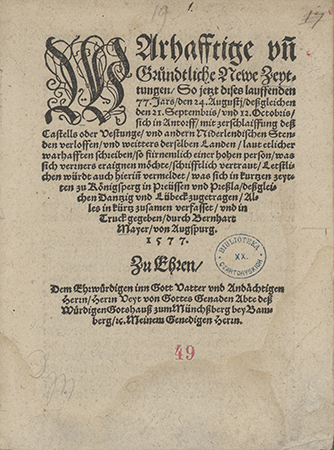 19
17
WArhafftige vñ
Gründtliche Newe Zeyt-
tungen / So jetzt dises lauffenden
77. Jars / den 24. Augustj / deßgleichen
den 21. Septembris / vnd 12. Octobris /
sich in Antorff / mit zerschlaiffung deß
Castells oder Vestunge / vnd andern Niderlendischen Sten-
den verloffen / vnd weitters derselben Landen / laut etlicher
warhafften schreiben / so fürnemlich einer hohen person / was
sich verners eraignen möchte / schrifftlich vertraut / Letstli-
chen würdt auch hierin̄ vermeldet / was sich in kurtzen zeyt-
ten zu Königsperg in Preüssen vnd Preßla / deßglei-
chen Dantzig vnd Lübeck zugetragen / Al-
les in kürtz zusamen verfasset / vnd in
Truck gegeben / durch Bernhart
Mayer / von Augspurg.
1577.
Zu Ehren /
Dem Ehrwürdigen inn Gott Vatter vnd Andächtigen
Herrn / Herrn Veyt von Gottes Genaden Abte deß
Würdigen Gotshauß zum Münchßberg bey Bam-
berg / ꝛc. Meinem Genedigen Herrn.
BIBLIOTEKA
XX.
CZARTORYSKICH
49